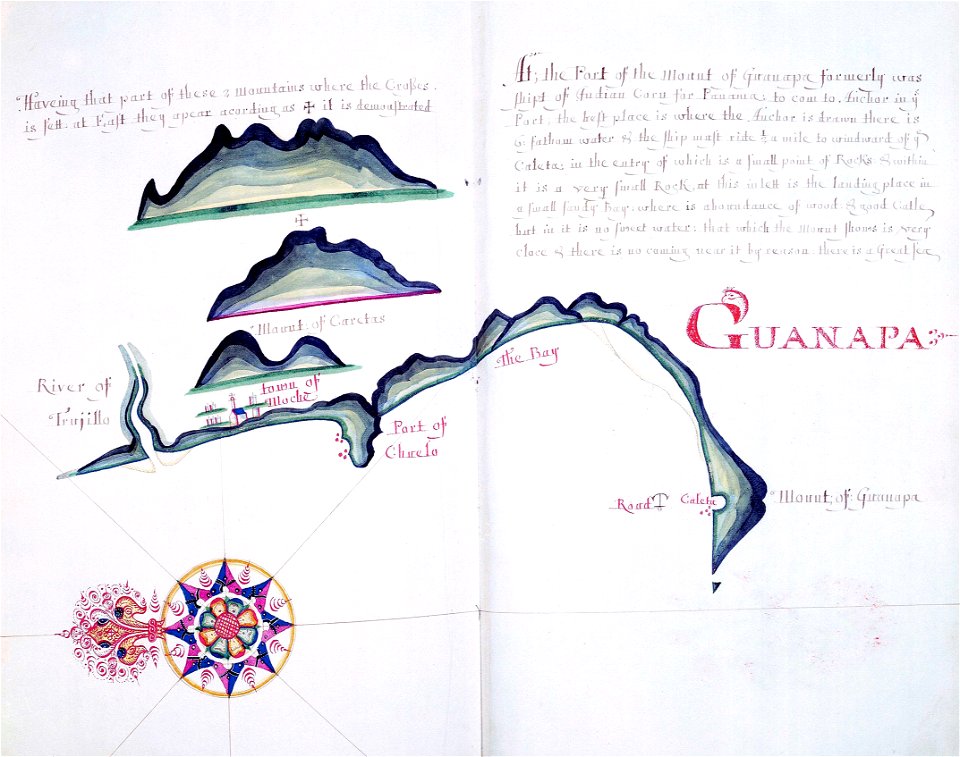 Haveing that part of these 2 mountains where the Croßes.
is sett: at East they apear acording as ✠ it is demonstrated
At; the Port of the Mount of Guanapa formerly was
shipt of Indian Corn for Panama; to com to, Anchor in yͤ
Port, the best place is where the Anchor is drawn there is
6: fathum water & the ship must ride ½ a mile to windward of yͤ
Caleta: in the entry of which is a small point of Rocks: & within
it is a very small Rock, at this inlett is the landing place in
a small sandy Bay: where is aboundance of wood: & good Catle,
but in it is no sweet water: that which the Mount shows is very
Close & there is no coming near it by reason there is a Great sea
GUANAPA
Mount of Caretas
The Bay
River of
Trujillo
town of
Moche
Port of
Road
Caleta
Mount; of: Guanapa